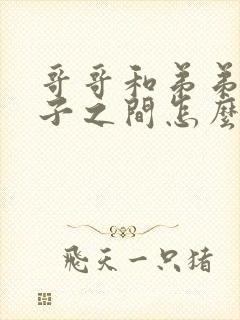 哥哥和弟弟
子之間怎麼
飛天一只猪